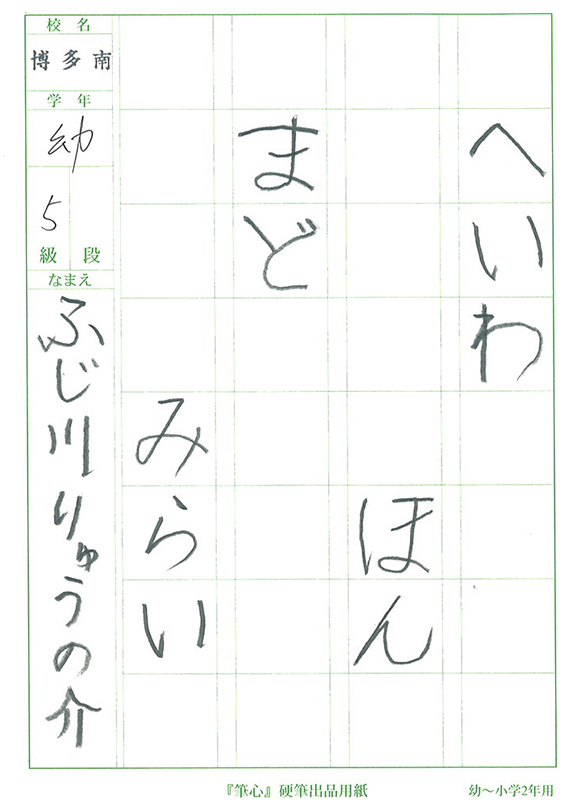 へいわ
ほん
まど
みらい
校名
博多南
学年
幼
5
級 段
なまえ
ふじ川りゅうの介
『筆心』硬筆出品用紙
幼～小学2年用